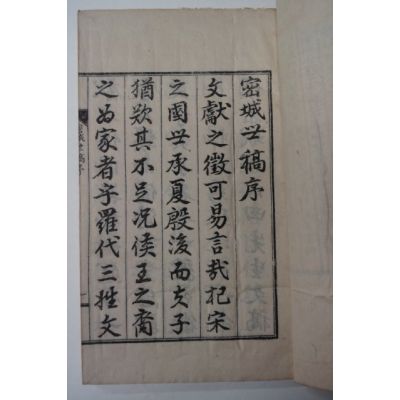 密城世稿序
文獻之徵可易言哉杞宋
之國世承夏殷後而夫子
猶歎其不足况侯王之裔
之為家者乎羅代三姓文